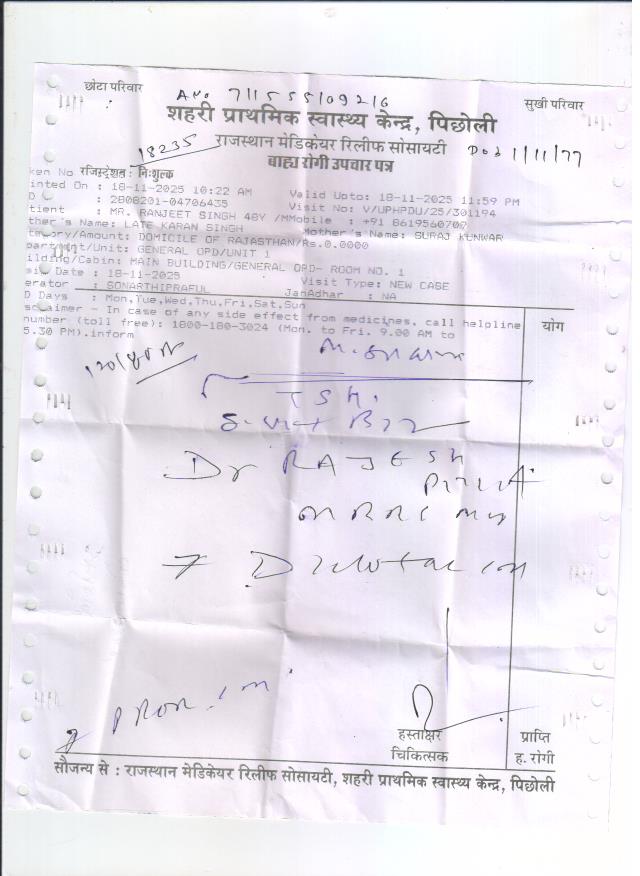 छोटा परिवार
सुखी परिवार
A No 711555109216
शहरी प्राथमिक स्वास्थ्य केन्द्र, पिछोली
18235
राजस्थान मेडिकेयर रिलीफ सोसायटी
DOB 1/11/77
बाह्य रोगी उपचार पत्र
ken No रजिस्ट्रेशन : निःशुल्क
inted On : 18-11-2025 10:22 AM Valid Upto: 18-11-2025 11:59 PM
D : 2808201-04706435 Visit No: V/UPHPDU/25/301194
tient : MR. RANJEET SINGH 48Y /M Mobile : +91 8619560709
ther's Name: LATE KARAN SINGH Mother's Name: SURAJ KUNWAR
tegory/Amount: DOMICILE OF RAJASTHAN/Rs.0.0000
partment/Unit: GENERAL OPD/UNIT 1
ilding/Cabin: MAIN BUILDING/GENERAL OPD- ROOM NO. 1
sit Date : 18-11-2025 Visit Type: NEW CASE
erator : SONARTHIPRAFUL JanAdhar : NA
D Days : Mon,Tue,Wed,Thu,Fri,Sat,Sun
sclaimer - In case of any side effect from medicines, call helpline
number (toll free): 1800-180-3024 (Mon. to Fri. 9.00 AM to
5.30 PM).inform
योग
TSH.
S. Vit B12
Dr RAJESH
हस्ताक्षर
चिकित्सक
प्राप्ति
ह. रोगी
सौजन्य से : राजस्थान मेडिकेयर रिलीफ सोसायटी, शहरी प्राथमिक स्वास्थ्य केन्द्र, पिछोली